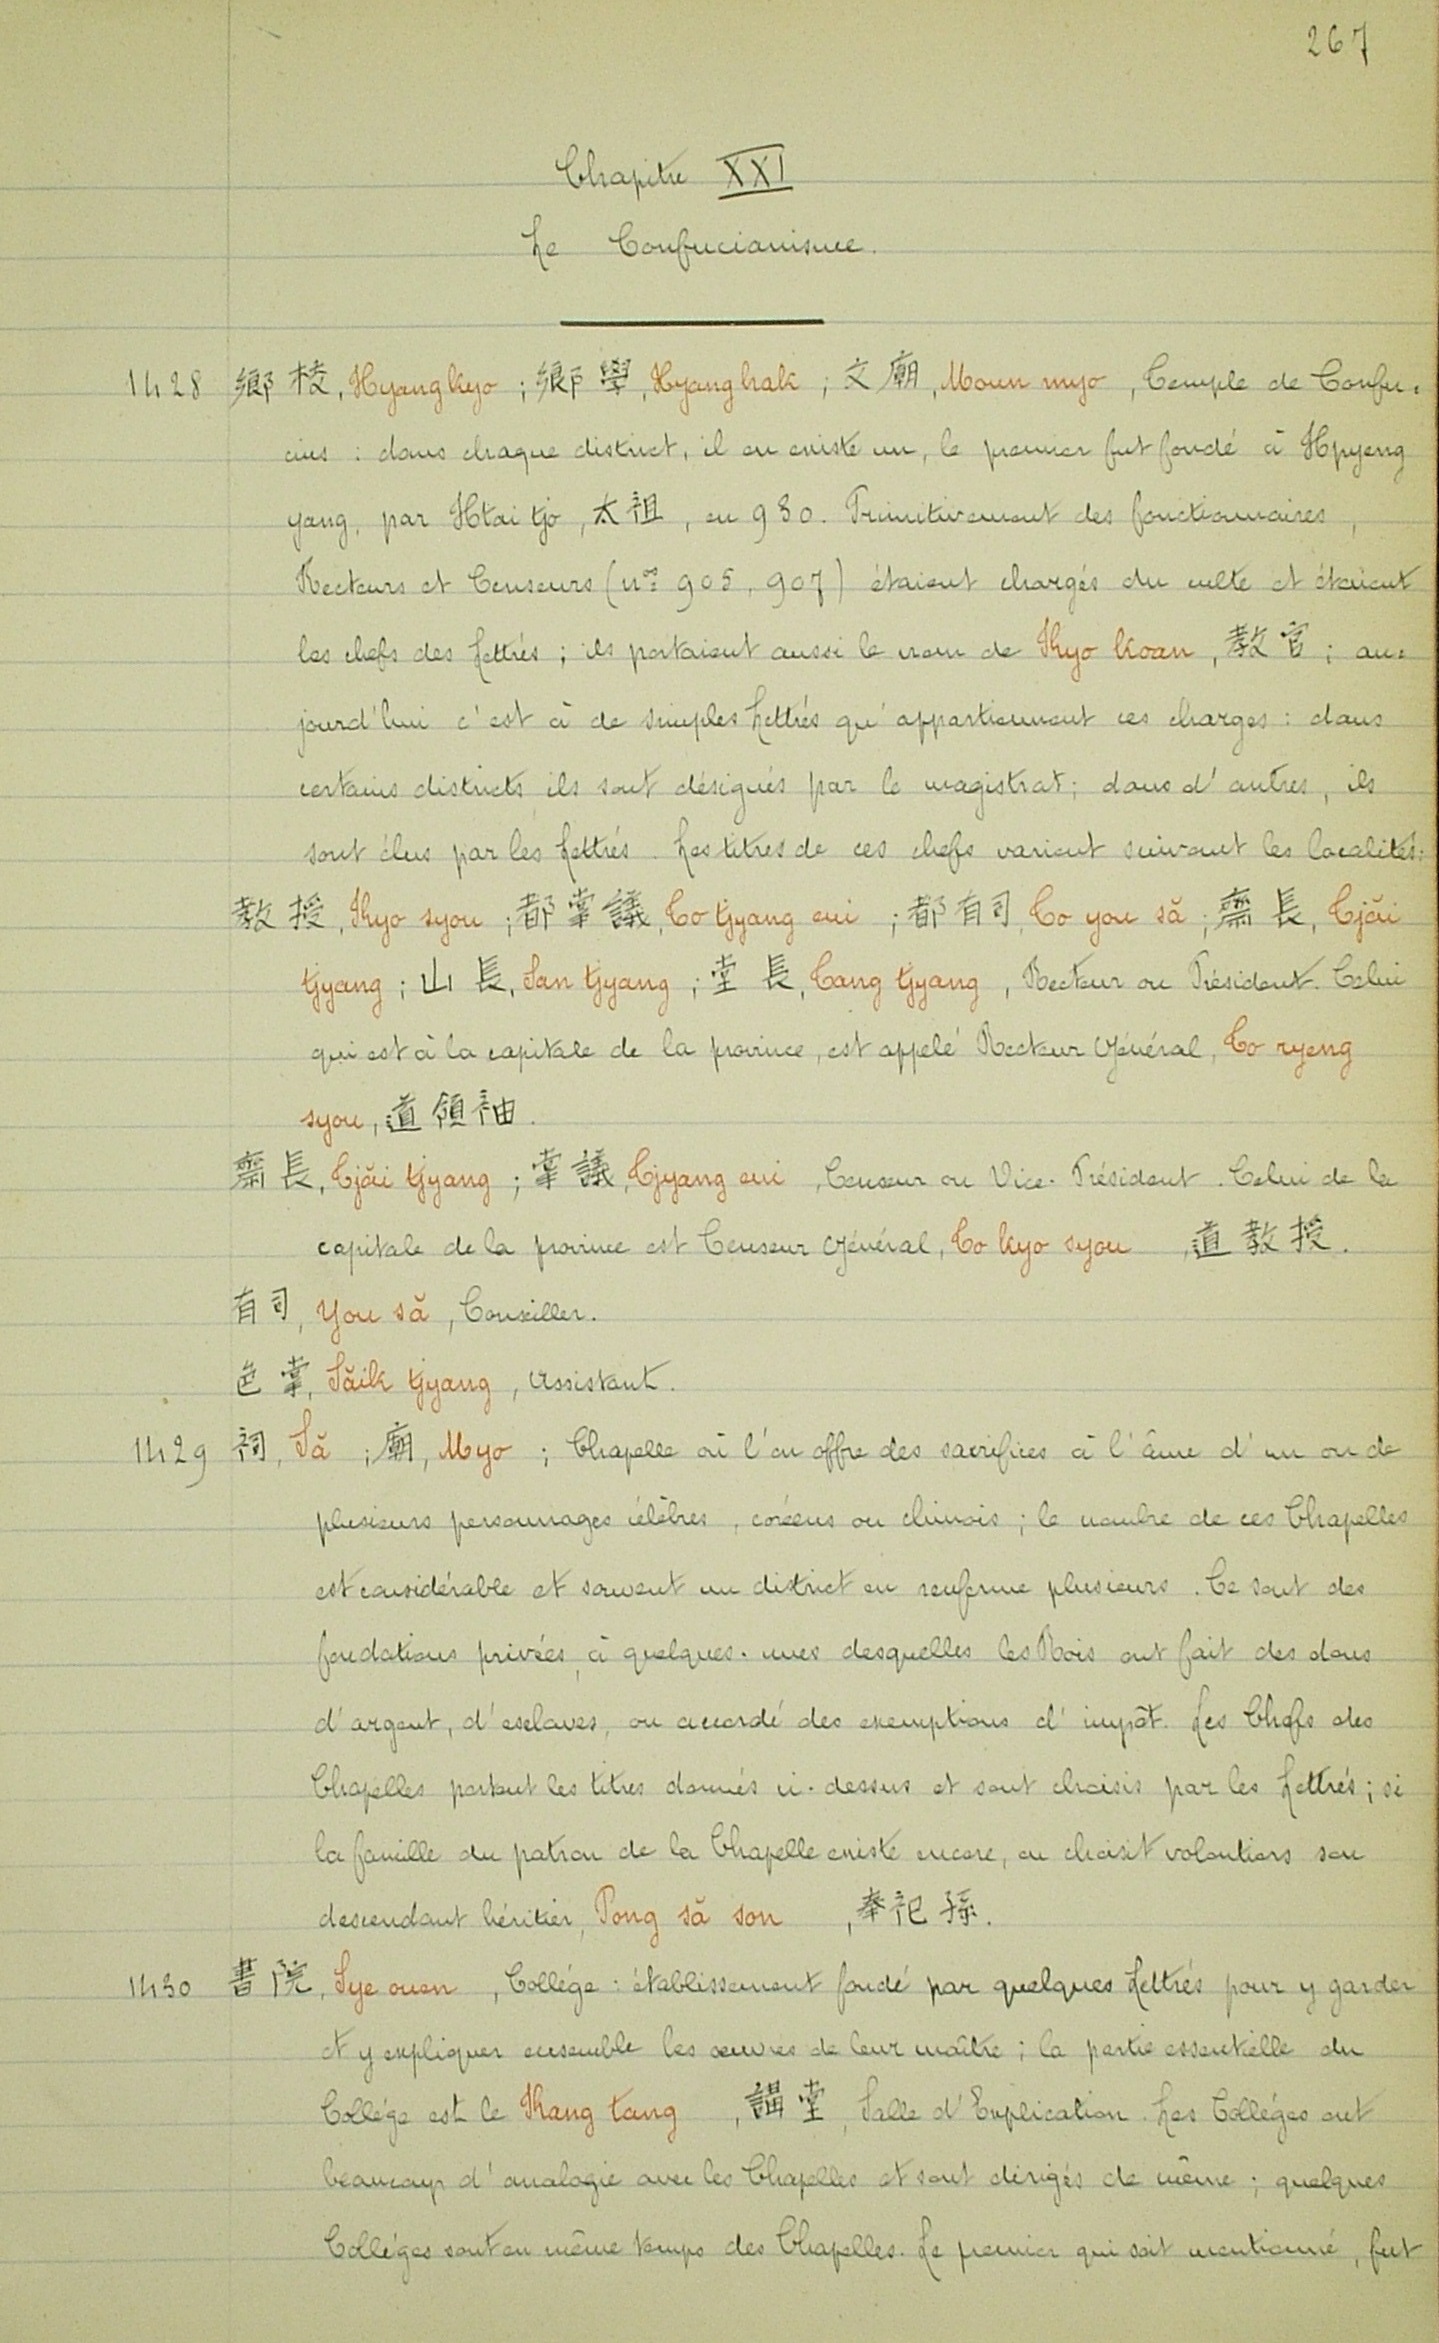 267
Chapitre XXI
Le Confucianisme.
1428 鄕校, Hyang kyo ; 鄕學, Hyang hak ; 文廟, Moun myo, Temple de Confu=
cius : dans chaque district, il en existe un, le premier fut fondé à Hpyeng
yang, par Htai tjo, 太祖, en 930. Primitivement des fonctionnaires,
Recteurs et Censeurs (nos 905, 907) étaient chargés du culte et étaient
les chefs des Lettrés ; ils portaient aussi le nom de Kyo koan, 敎官 ; au=
jourd'hui c'est à de simples Lettrés qu'appartiennent ces charges : dans
certains districts ils sont désignés par le magistrat ; dans d'autres, ils
sont élus par les Lettrés. Les titres de ces chefs varient suivant les localités :
敎授, Kyo syou ; 都掌議, To tjyang eui ; 都有司, To you să ; 齋長, Tjăi
tjyang ; 山長, San tjyang ; 堂長, Tang tjyang, Recteur ou Président. Celui
qui est à la capitale de la province, est appelé Recteur Général, To ryeng
syou, 道領袖.
齋長, Tjăi tjyang ; 掌議, Tjyang eui, Censeur ou Vice-Président. Celui de la
capitale de la province est Censeur Général, To kyo syou, 道敎授.
有司, You să, Conseiller.
色掌, Săik tjyang, Assistant.
1429 祠, Să ; 廟, Myo ; Chapelle où l'on offre des sacrifices à l'âme d'un ou de
plusieurs personnages célèbres, coréens ou chinois ; le nombre de ces Chapelles
est considérable et souvent un district en renferme plusieurs. Ce sont des
fondations privées, à quelques-unes desquelles les Rois ont fait des dons
d'argent, d'esclaves, ou accordé des exemptions d'impôt. Les Chefs des
Chapelles portent les titres donnés ci-dessus et sont choisis par les Lettrés ; si
la famille du patron de la Chapelle existe encore, on choisit volontiers son
descendant héritier, Pong să son, 奉祀孫.
1430 書院, Sye ouen, Collége : établissement fondé par quelques Lettrés pour y garder
et y expliquer ensemble les œuvres de leur maître ; la partie essentielle du
Collége est le Kang tang, 講堂, Salle d'Explication. Les Colléges ont
beaucoup d'analogie avec les Chapelles et sont dirigés de même ; quelques
Colléges sont en même temps des Chapelles. Le premier qui soit mentionné, fut